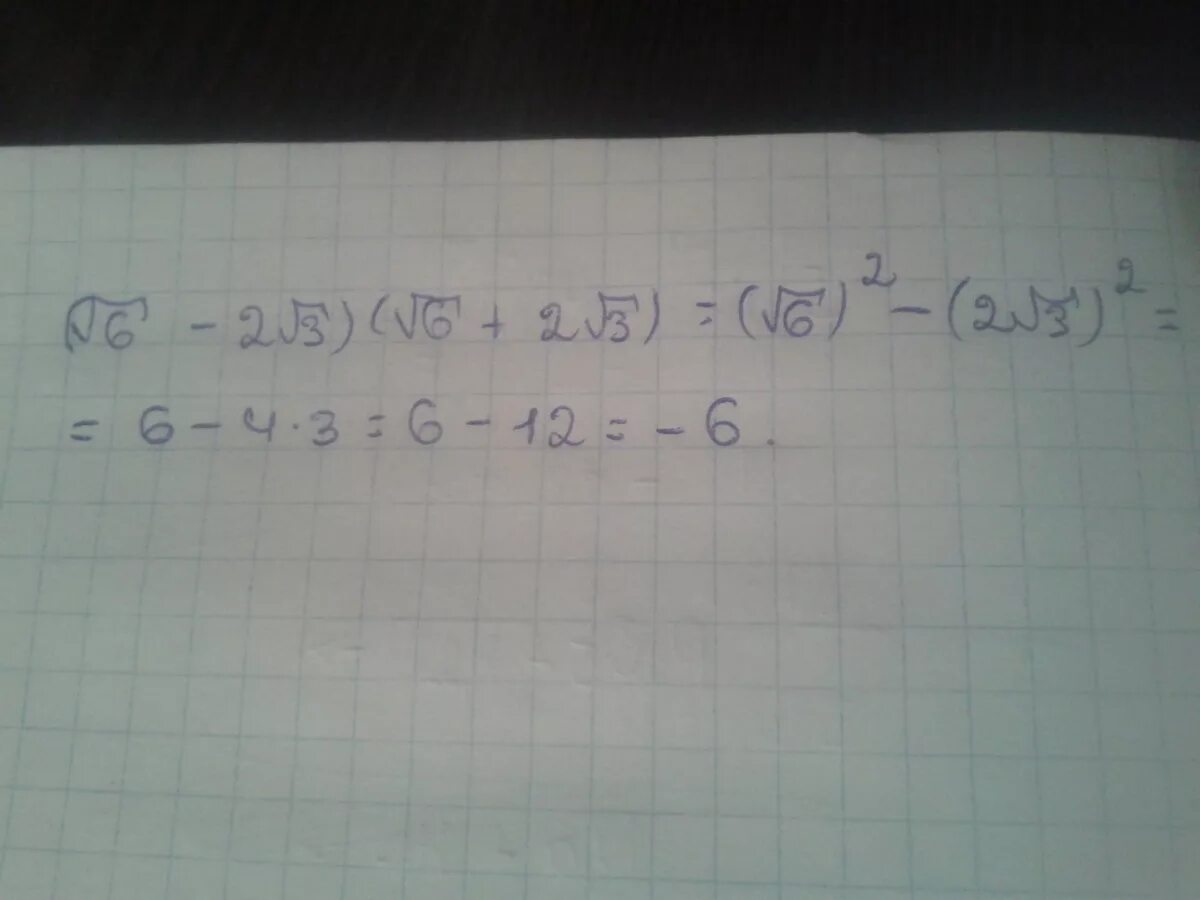 (√6 - 2√3)(√6 + 2√3) = (√6)² - (2√3)² =
= 6 - 4·3 = 6 - 12 = - 6.